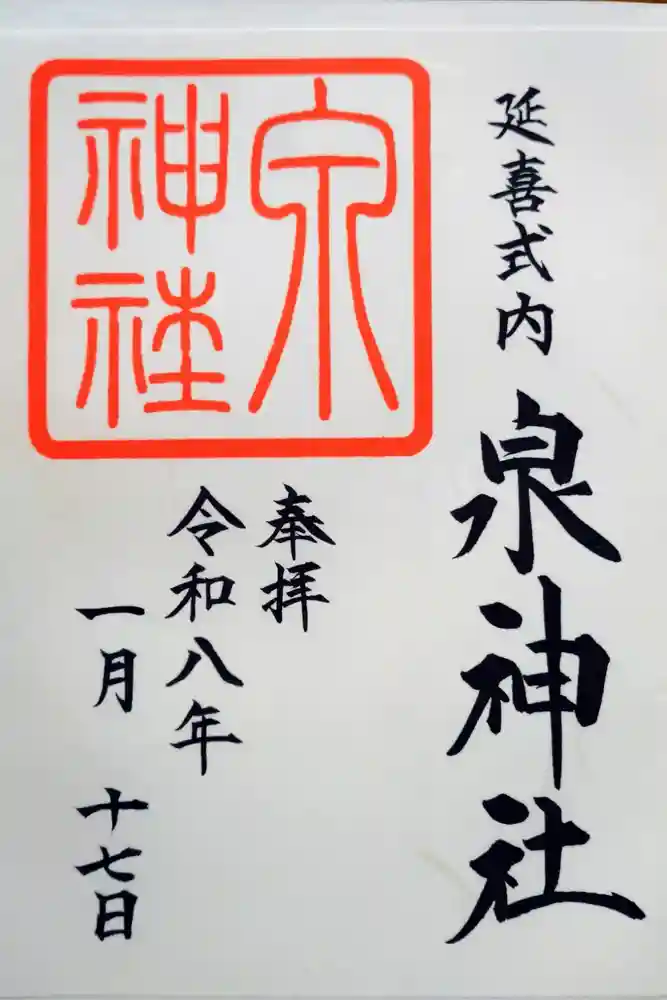 延喜式内
泉神社
奉拝
令和八年
一月十七日
泉
神社